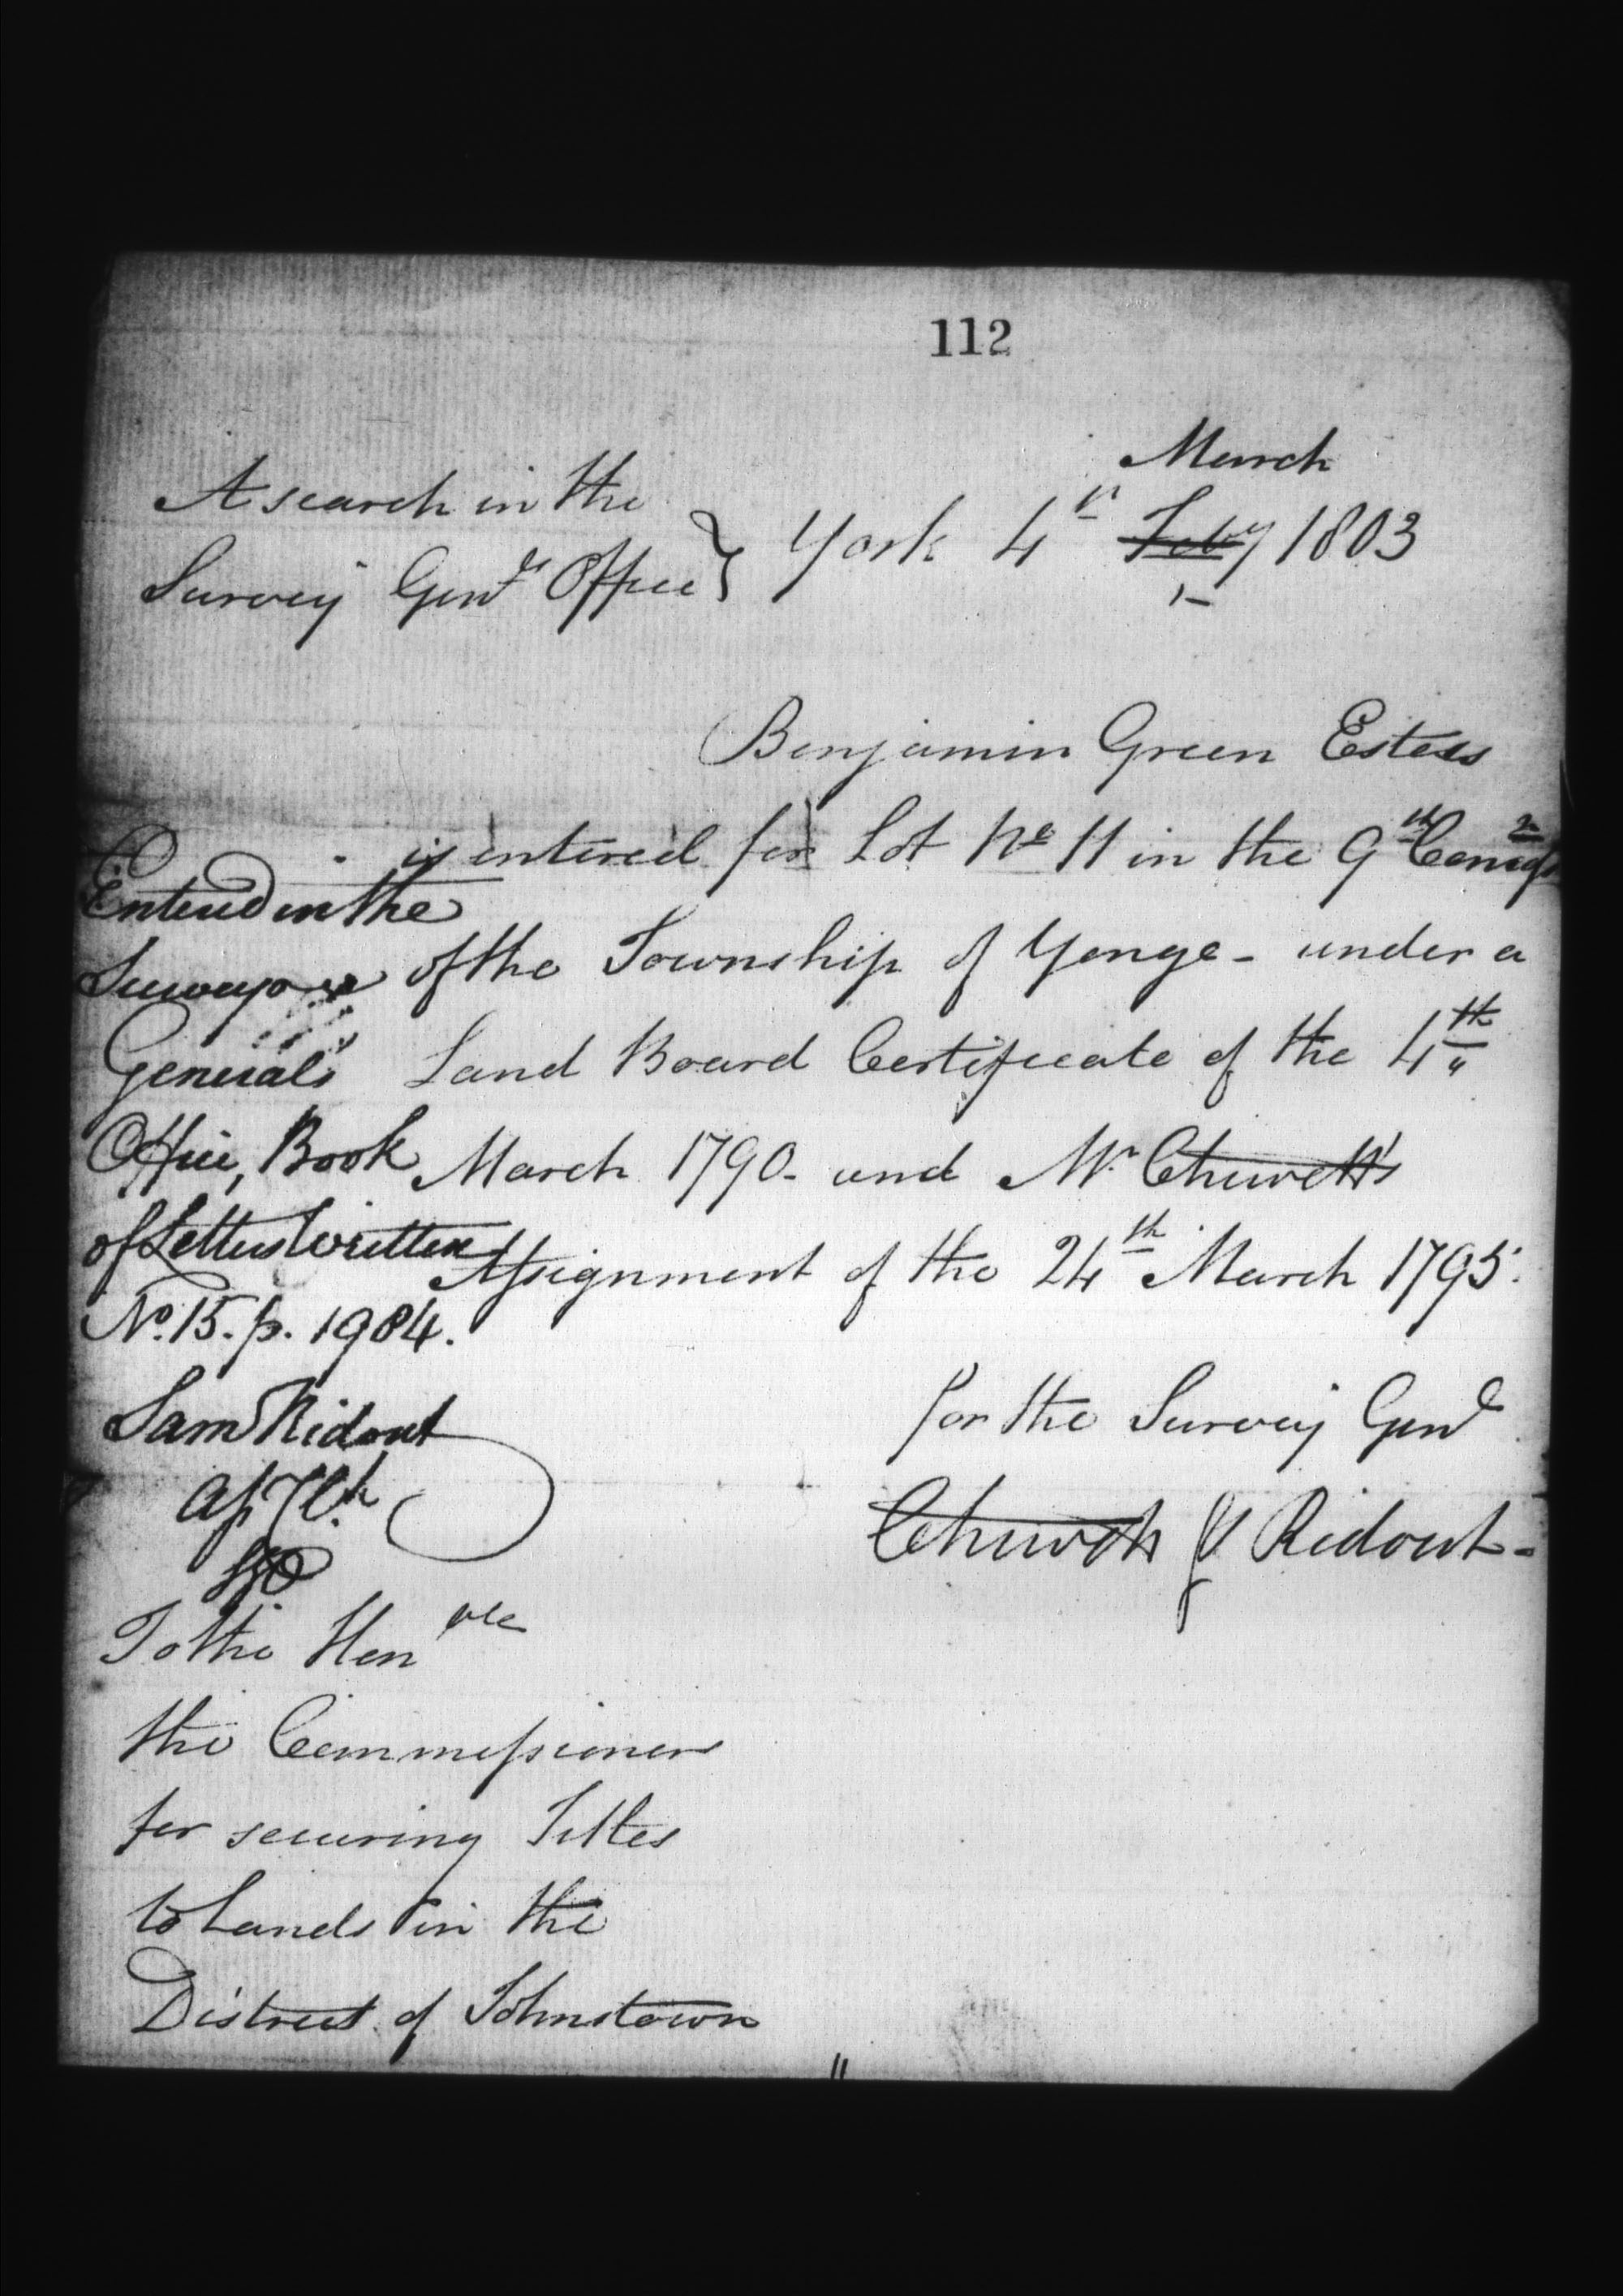 112
A search in the
Survey Genls Office } York 4th March Feby 1803
Benjamin Green Estes
is entered for Lot No 11 in the 9th Concn
of the Township of Yonge - under a
Land Board Certificate of the 4th
March 1790 - and Mr Chewett's
Assignment of the 24th March 1795.
Entered in the
Surveyor
General's
Office, Book
of Letters Written
No. 15. p. 1984.
Sam Ridout
For the Survey Genl
Chewett & Ridout -
To the Honble
the Commissioners
for securing Titles
to Lands in the
District of Johnstown